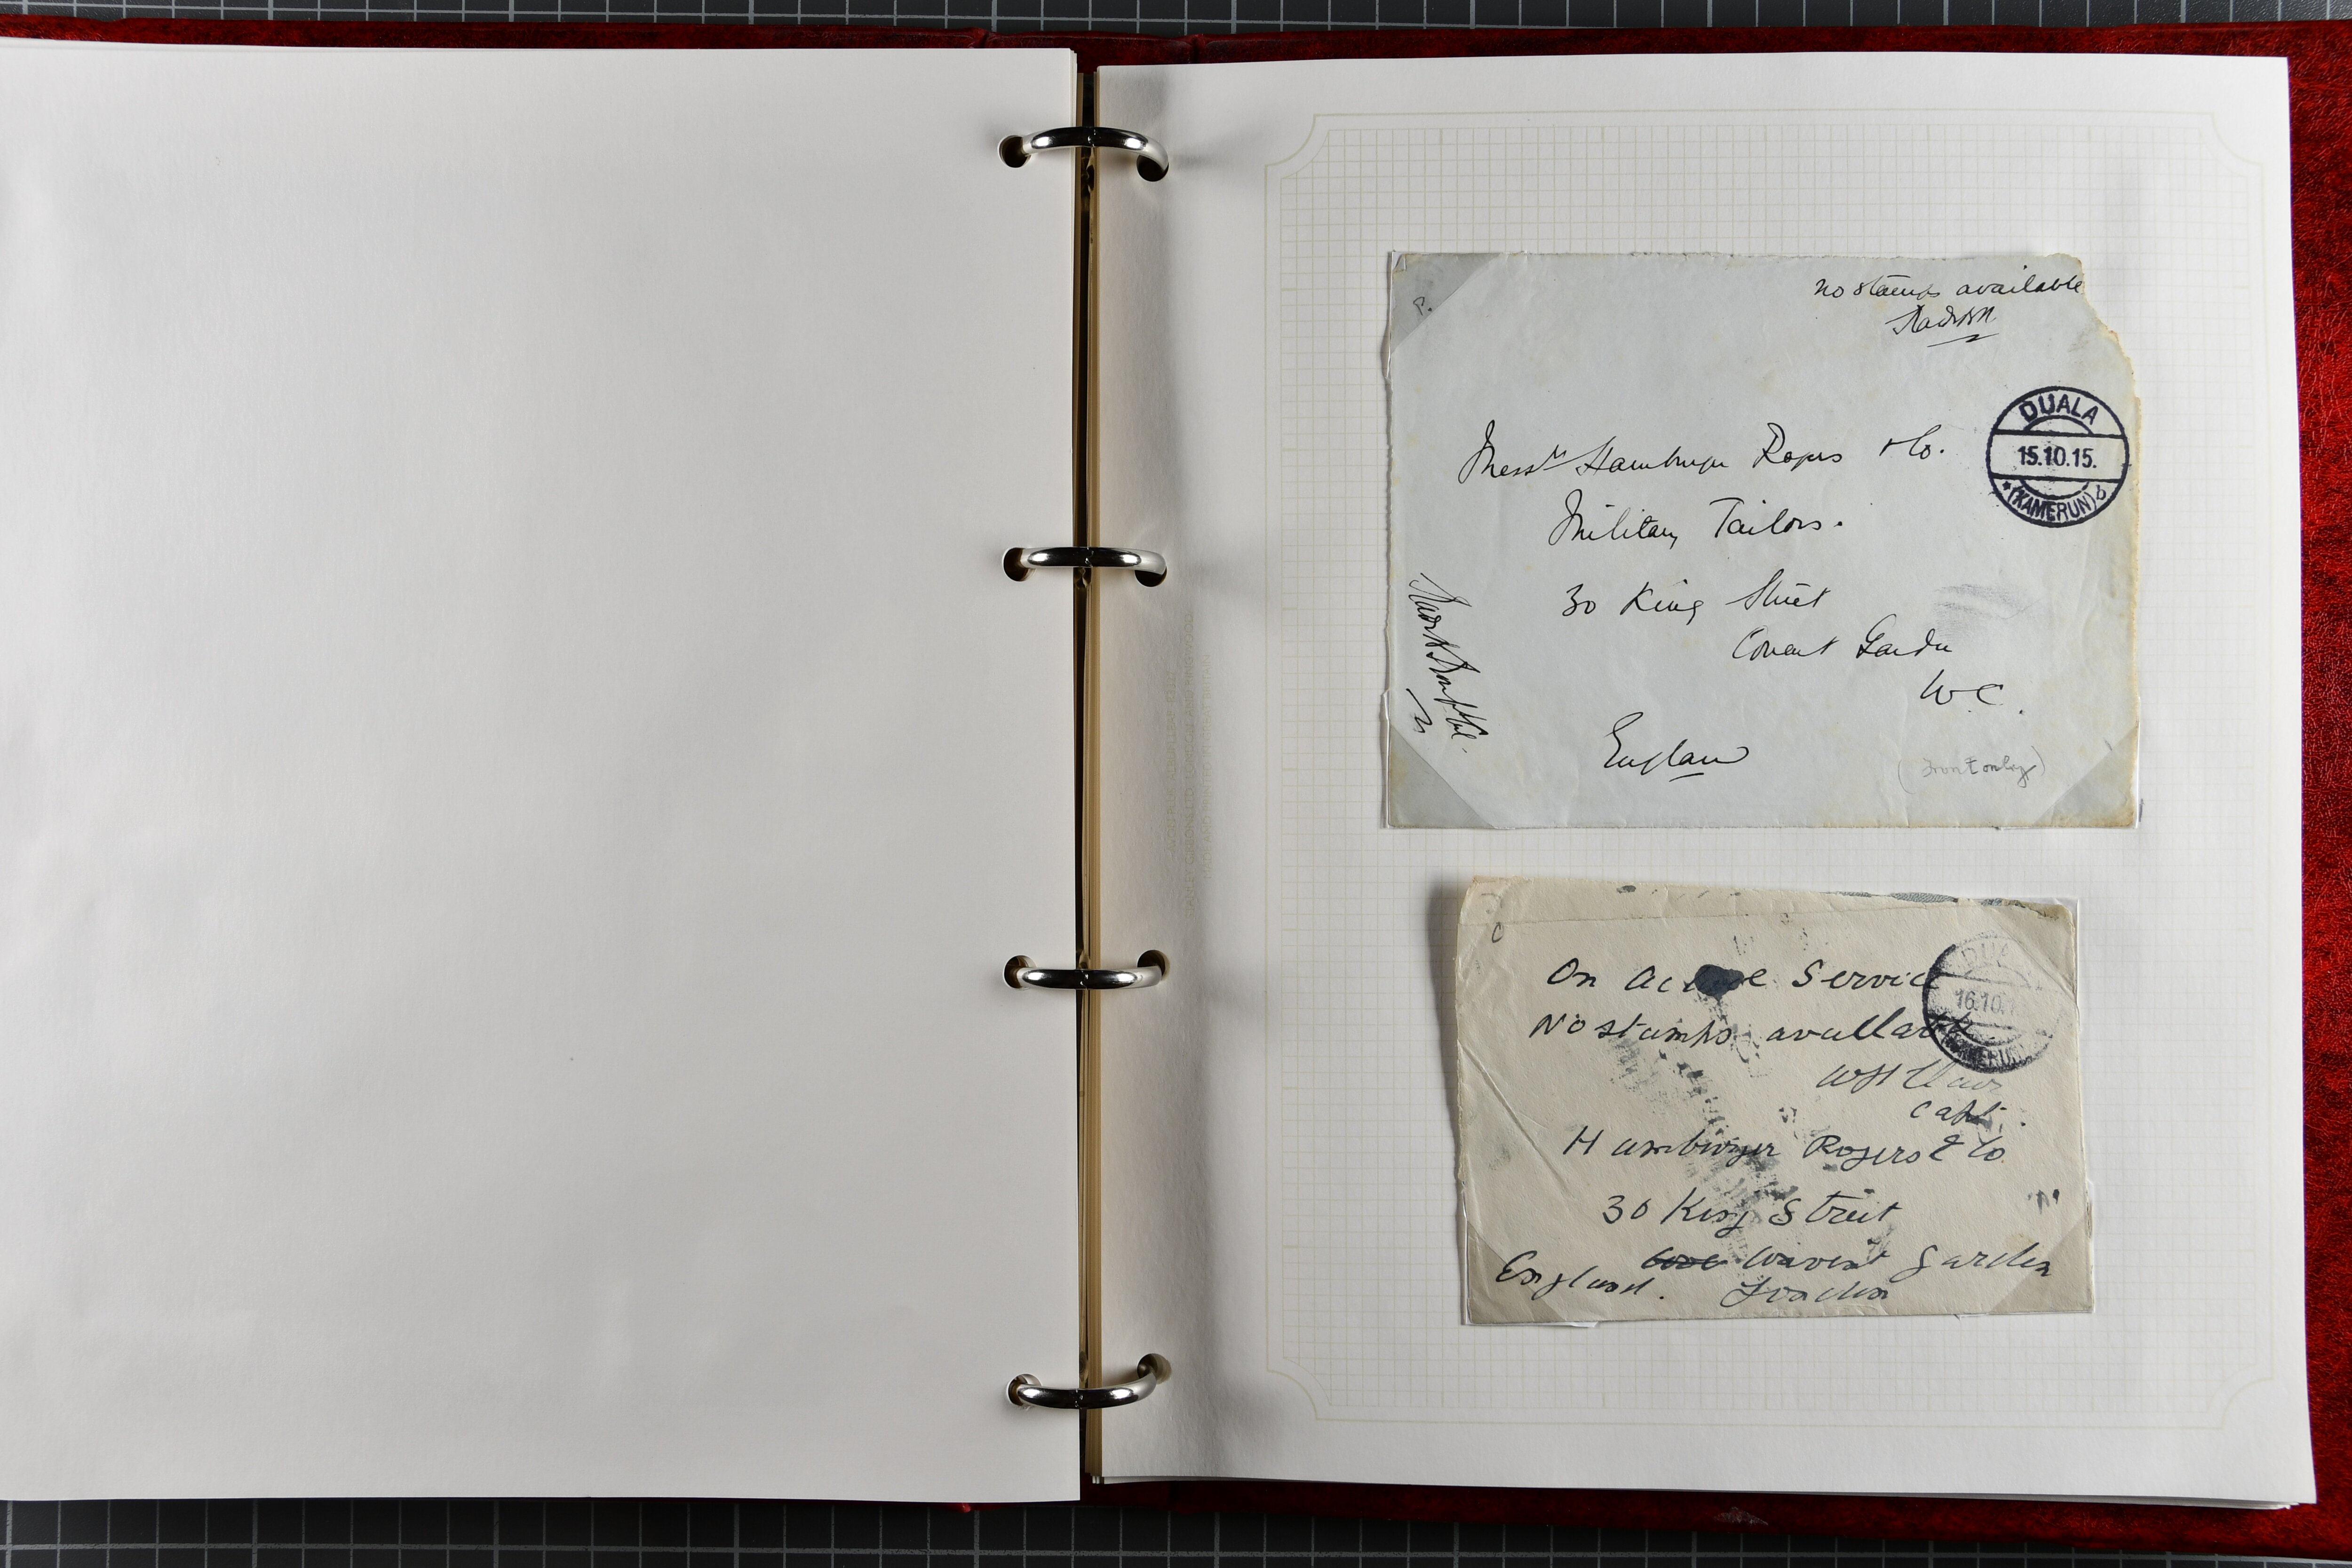 no stamps available
DUALA
15.10.15.
(KAMERUN) b
Messrs Hamburger Rogers & Co.
Military Tailors.
30 King Street
Covent Garden
W.C.
England
(Front only)
On Active Service
No stamps available
DUA
16.10.
Capt.
Hamburger Rogers & Co
30 King Street
Covent Garden
England. London